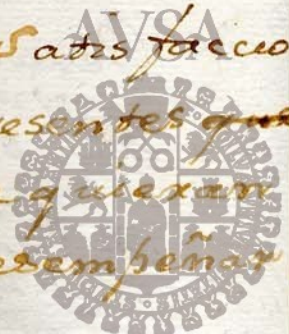 AVSA
Satisfaccio
esentes que
quiexan
esempeñar